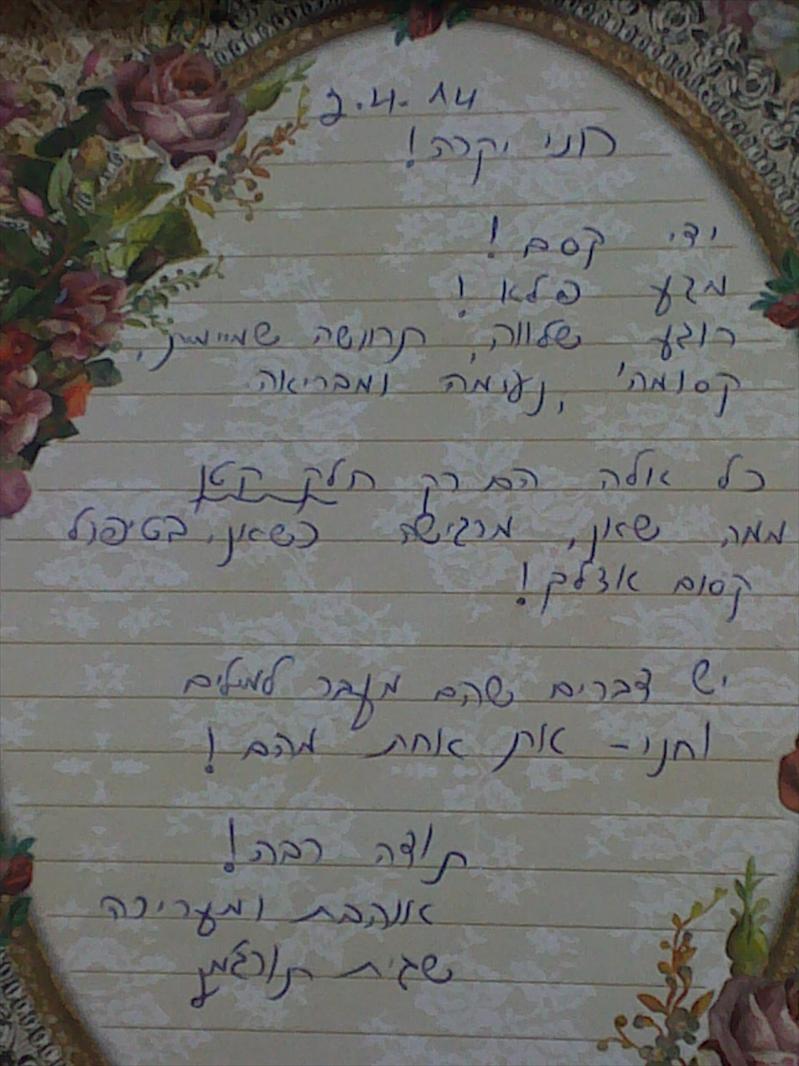 2.4.14
חני יקרה!
ידי קסם!
מגע פלא!
רוגע שלווה, תחושה שמיימית,
קסומה, נעימה ומבריאה
כל אלה הם רק חלק קטן
ממה שאני מרגישה כשאני בטיפול
קסום אצלך!
יש דברים שהם מעבר למילים
וחני - את אחת מהם!
תודה רבה!
אוהבת ומעריכה
שגית תורג'מן